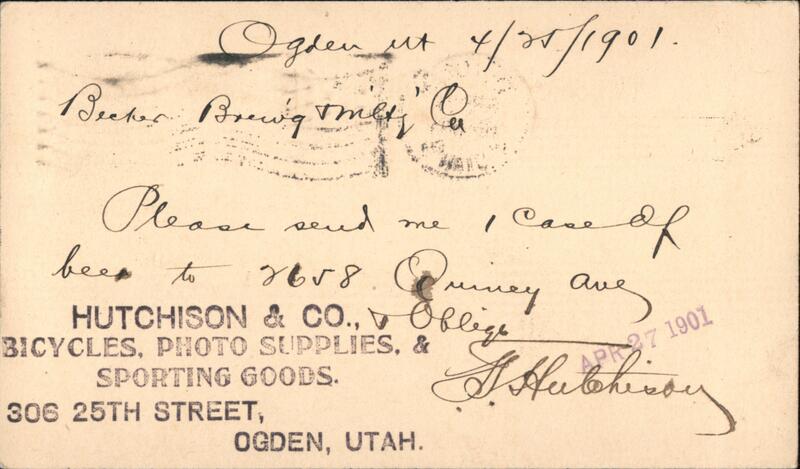 Ogden Ut 4/25/1901.
Becker Brew'g & M'lt'g Co
Please send me 1 Case Of
beer to 2658 Quincy Ave
& Oblige
HUTCHISON & CO.,
BICYCLES, PHOTO SUPPLIES, &
SPORTING GOODS.
306 25TH STREET,
OGDEN, UTAH.
APR 27 1901
Hutchison